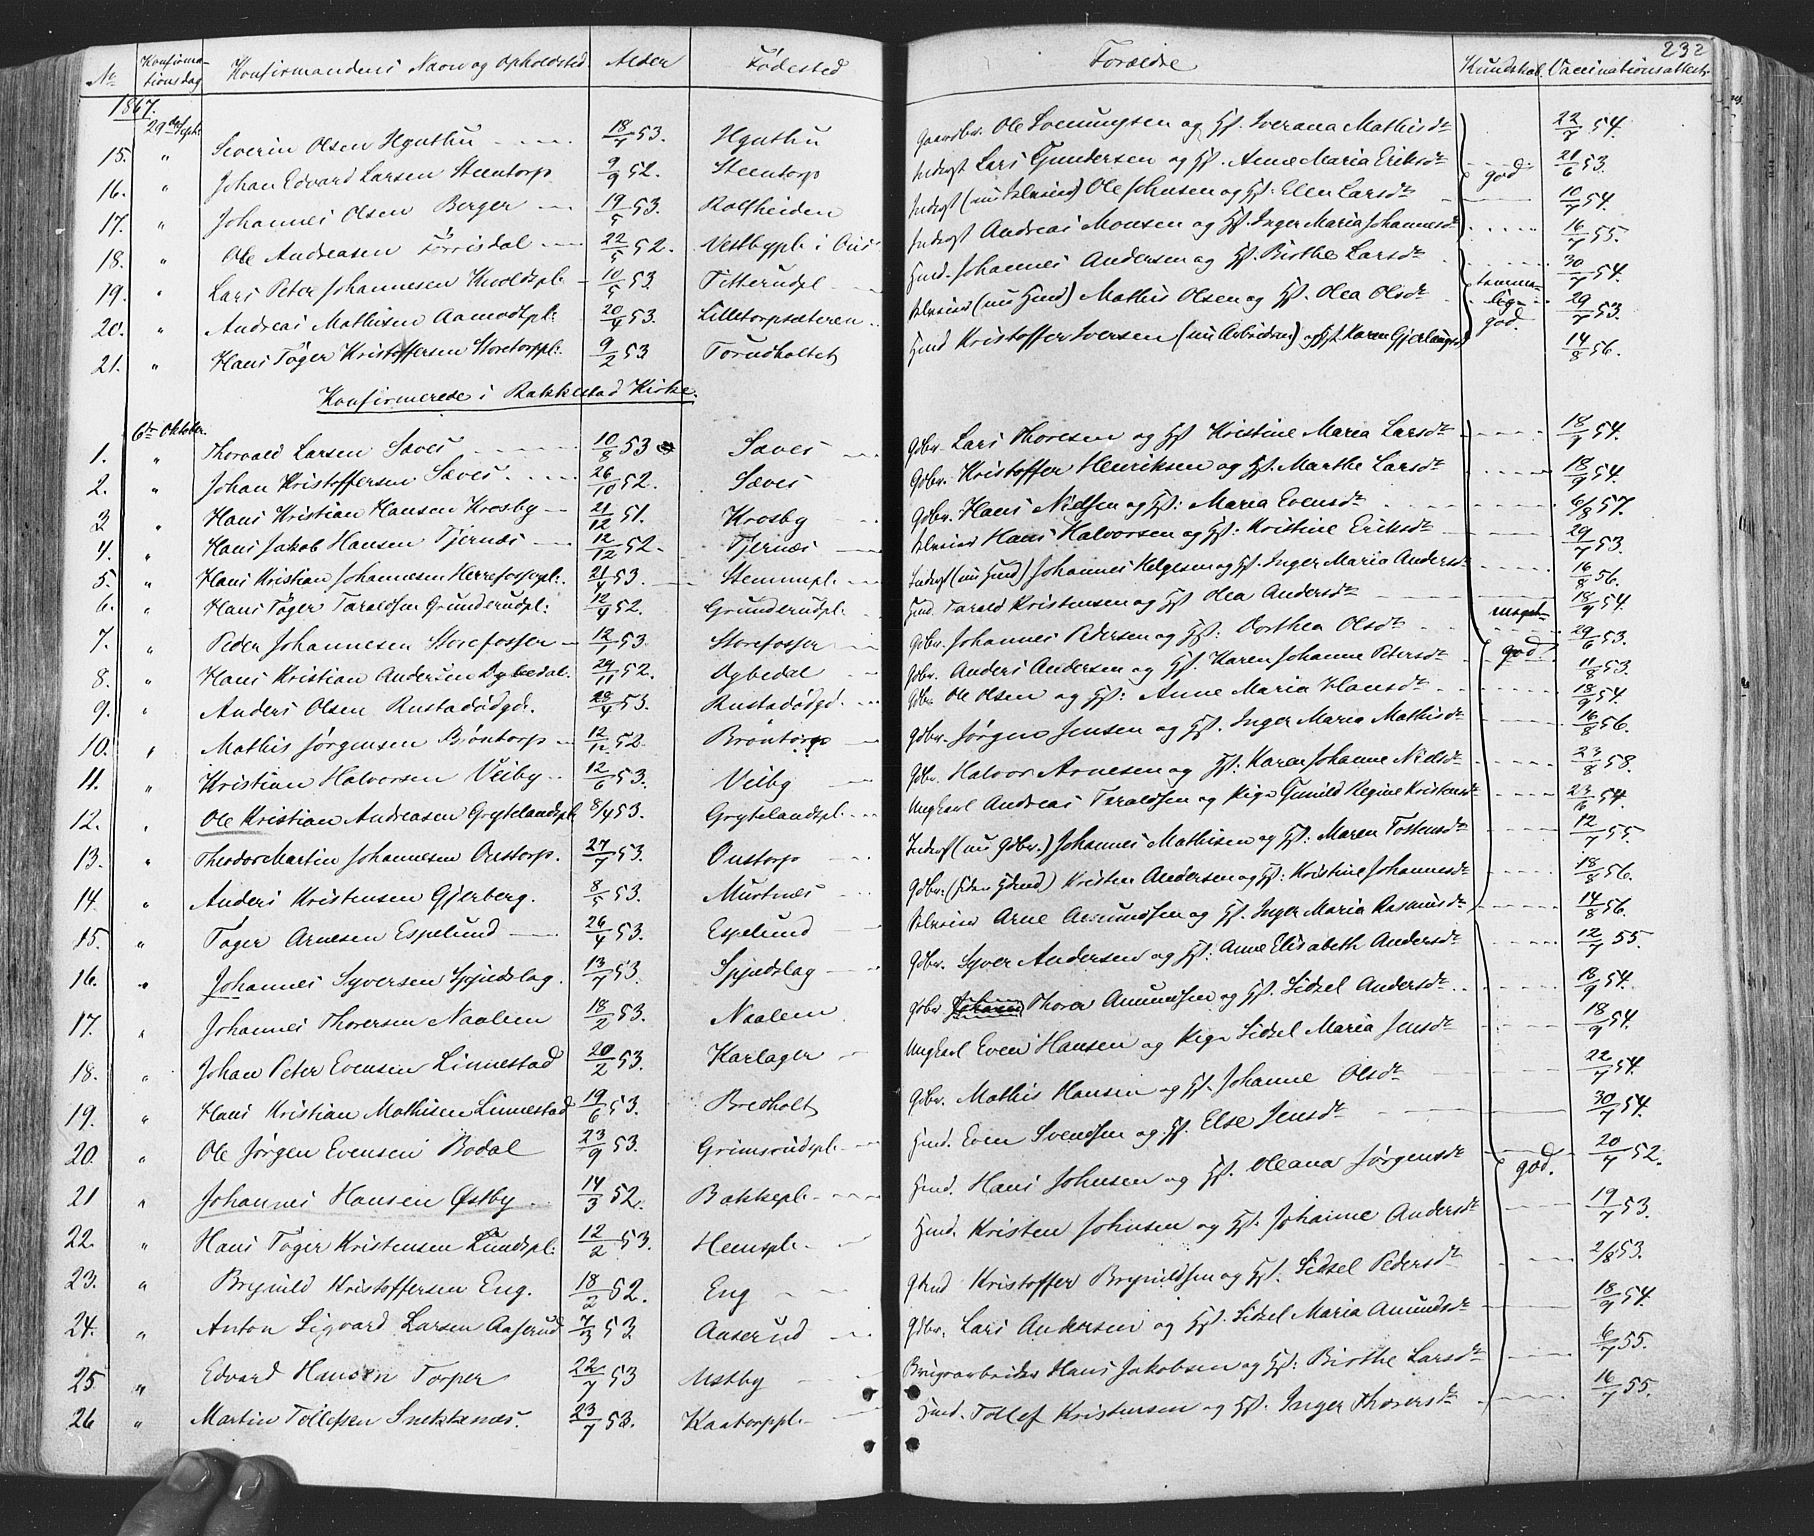 232
No Konfirmationsdag Konfirmandens Navn og Opholdsted Alder Fødested Forældre Kundskab Vaccinationsattest
1867.
29de Septbr
15. " Severin Olsen 18/1 53. Gaardbr. Ole og Hst. Mathisdr 22/7 54.
16. " Johan Edvard Larsen Steentorp 9/9 52. Steentorp Inderst Lars Gundersen og Hst. Anne Maria Eriksdr god 21/6 53.
17. " Johannes Olsen Berger 19/5 53. Kolfheiden Inderst (nu Selveier) Ole Johnsen og Hst: Ellen Larsdr 10/7 54.
18. " Ole Andreasen Torrisdal 22/5 52. Vestbypl. i Inderst Andreas Monsen og Hst. Inger Maria Johannesdr 16/7 55.
19. " Lars Peter Johannesen Kvoldspl. 10/5 53. Titterudpl Hmd. Johannes Andersen og Hst. Birthe Larsdr 30/7 54.
20. " Andreas Mathisen Aamodtpl: 20/4 53. Lilletorpsæteren Selveier (nu Hmd) Mathis Olsen og Hst. Olea Olsdr temmelig god. 29/7 53.
21. " Hans Tøger Kristoffersen Storetorppl: 9/2 53 Torudholtet Hmd Kristoffer Iversen (nu Arbeidsm) og Hst. Karen Gjerlaugsd 14/8 56.
Konfirmerede i Rakkestad Kirke.
6te Oktober.
1. " Thorvald Larsen Sæves 10/8 53 Sæves Gdbr. Lars Thoresen og Hst Kristine Maria Larsdr 18/9 54.
2. " Johan Kristoffersen Sæves 26/10 52. Sæves Gdbr. Kristoffer Henriksen og Hst. Marthe Larsdr 18/9 54.
3 " Hans Kristian Hansen Krosby 21/12 51. Krosby Gdbr. Hans Nielsen og Hst: Maria Evensdr 6/8 57.
4. " Hans Jakob Hansen Tjernæs 12/12 52. Tjernæs Selveier Hans Halvorsen og Hst: Kristine Eriksdr 29/7 53.
5. " Hans Kristian Johannesen Herrefosspl: 21/4 53. Stemmpl. Inderst (nu Hmd) Johannes Helgesen og Hst. Inger Maria Andersdr 16/8 56.
6. " Hans Tøger Taraldsen Grunderudpl: 12/4 52. Grunderudpl. Hmd. Tarald Kristensen og Hst Olea Andersdr meget 18/9 54.
7. " Peder Johannesen Storefosser 12/1 53. Storefosser Gdbr. Johannes Pedersen og Hst: Dorthea Olsdr god. 29/6 53.
8. " Hans Kristian Andersen Dybedal. 29/11 52. Dybedal Gdbr. Anders Andersen og Hst. Karen Johanne Petersdr 11/8 53.
9. " Anders Olsen Rustadødgd. 20/4 53. Rustadødgd. Gdbr. Ole Olsen og Hst: Anne Maria Hansdr 18/9 54.
10. " Mathis Jørgensen Brøntorp 12/12 52. Brøntorp Gdbr. Jørgen Jensen og Hst. Inger Maria Mathisdr 16/8 56.
11. " Kristian Halvorsen Veiby 12/6 53. Veiby Gdbr. Halvor Arnesen og Hst. Karen Johanne Nielsdr 23/8 58.
12. " Ole Kristian Andreasen Grytelandspl. 8/4 53. Grytelandspl. Ungkarl Andreas Taraldsen og Pige Gunild Regine Kristensdr 23/6 54.
13. " Theodor Martin Johannesen Oustorp. 27/7 53. Oustorp Inderst (nu Gdbr.) Johannes Mathisen og Hst: Maren Tostensdr 12/7 55.
14. " Anders Kristensen Gjerberg. 8/5 53. Murtnæs Gdbr. (siden Hmd) Kristen Andersen og Hst: Kristine Johannesdr 18/8 56.
15. " Tøger Arnesen Espelund 26/4 53. Espelund Selveier Arne Amundsen og Hst. Inger Maria Rasmusdr 14/8 56.
16. " Johannes Syversen Spjudslag. 13/7 53. Spjudslag Gdbr. Syver Andersen og Hst: Anne Elisabeth Andersdr 12/7 55.
17. " Johannes Thoresen Naalem 18/2 53. Naalem Gdbr Thore Amundsen og Hst. Sidsel Andersdr 18/9 54.
18. " Johan Peter Evensen Linnestad 20/2 53. Karlager Ungkarl Even Hansen og Pige Sidsel Maria Jensdr 18/9 54.
19. " Hans Kristian Mathisen Linnestad 19/6 53. Bredholt Gdbr. Mathis Hansen og Hst. Johanne Olsdr 22/7 54.
20. " Ole Jørgen Evensen Bodal 23/9 53. Grimsrudspl. Hmd. Even Svendsen og Hst. Else Jensdr 30/7 54.
21 " Johannes Hansen Østby. 14/3 52. Bakkepl. Hmd. Hans Johnsen og Hst. Oleana Jørgensdr god. 20/7 52.
22. " Hans Tøger Kristensen Lundspl. 12/2 53. Heenspl. Hmd. Kristen Johnsen og Hst. Johanne Andersdr 19/7 53.
23. " Brynild Kristoffersen Eng. 18/2 52. Eng Hmd Kristoffer Brynildsen og Hst. Sidsel Pedersdr 2/8 53.
24. " Anton Sigvard Larsen Aaserud 7/3 53 Aaserud Gdbr. Lars Andersen og Hst Sidsel Maria Amundsdr 18/9 54.
25. " Edvard Hansen Torper 22/7 53 Ustby Brugsarbeider Hans Jakobsen og Hst: Birthe Larsdr 6/7 55.
26 " Martin Tollefsen Snekkenæs. 23/7 53. Kaatorppl. Hmd. Tollef Kristensen og Hst. Inger Thoresdr 16/7 55.